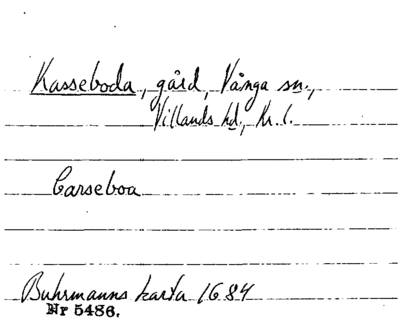 Kasseboda, gård, Vånga sn.,
Villands hd, Kr. l.
Carseboa
Buhrmanns karta 1684
Nr 5486.